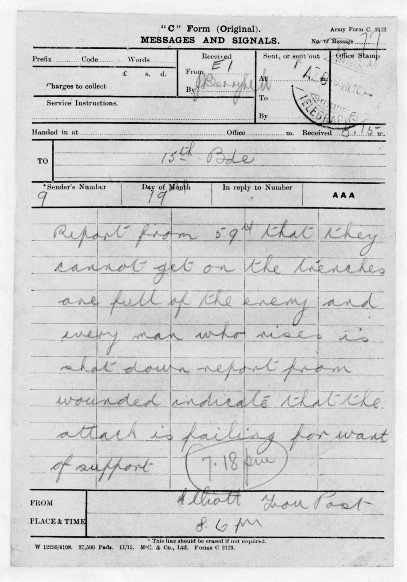 "C" Form (Original). Army Form C. 2123
MESSAGES AND SIGNALS. No. of Message 77
Prefix Code Words
£ s. d.
Charges to collect
Service Instructions.
Received
From E1
By
Sent, or sent out
At
To
By
Office Stamp
TELEGRAPHS
Handed in at Office m. Received 8.15 m.
TO 15th Bde
*Sender's Number Day of Month In reply to Number AAA
9 19
Report from 59th that they
cannot get on the trenches
are full of the enemy and
every man who rises is
shot down report from
wounded indicate that the
attack is failing for want
of support 7.18 pm
FROM Elliott Iron Post
PLACE & TIME 8.6 PM
* This line should be erased if not required.
W 12226/6108. 37,500 Pads. 11/15. McC. & Co., Ltd. Forms C 2123.